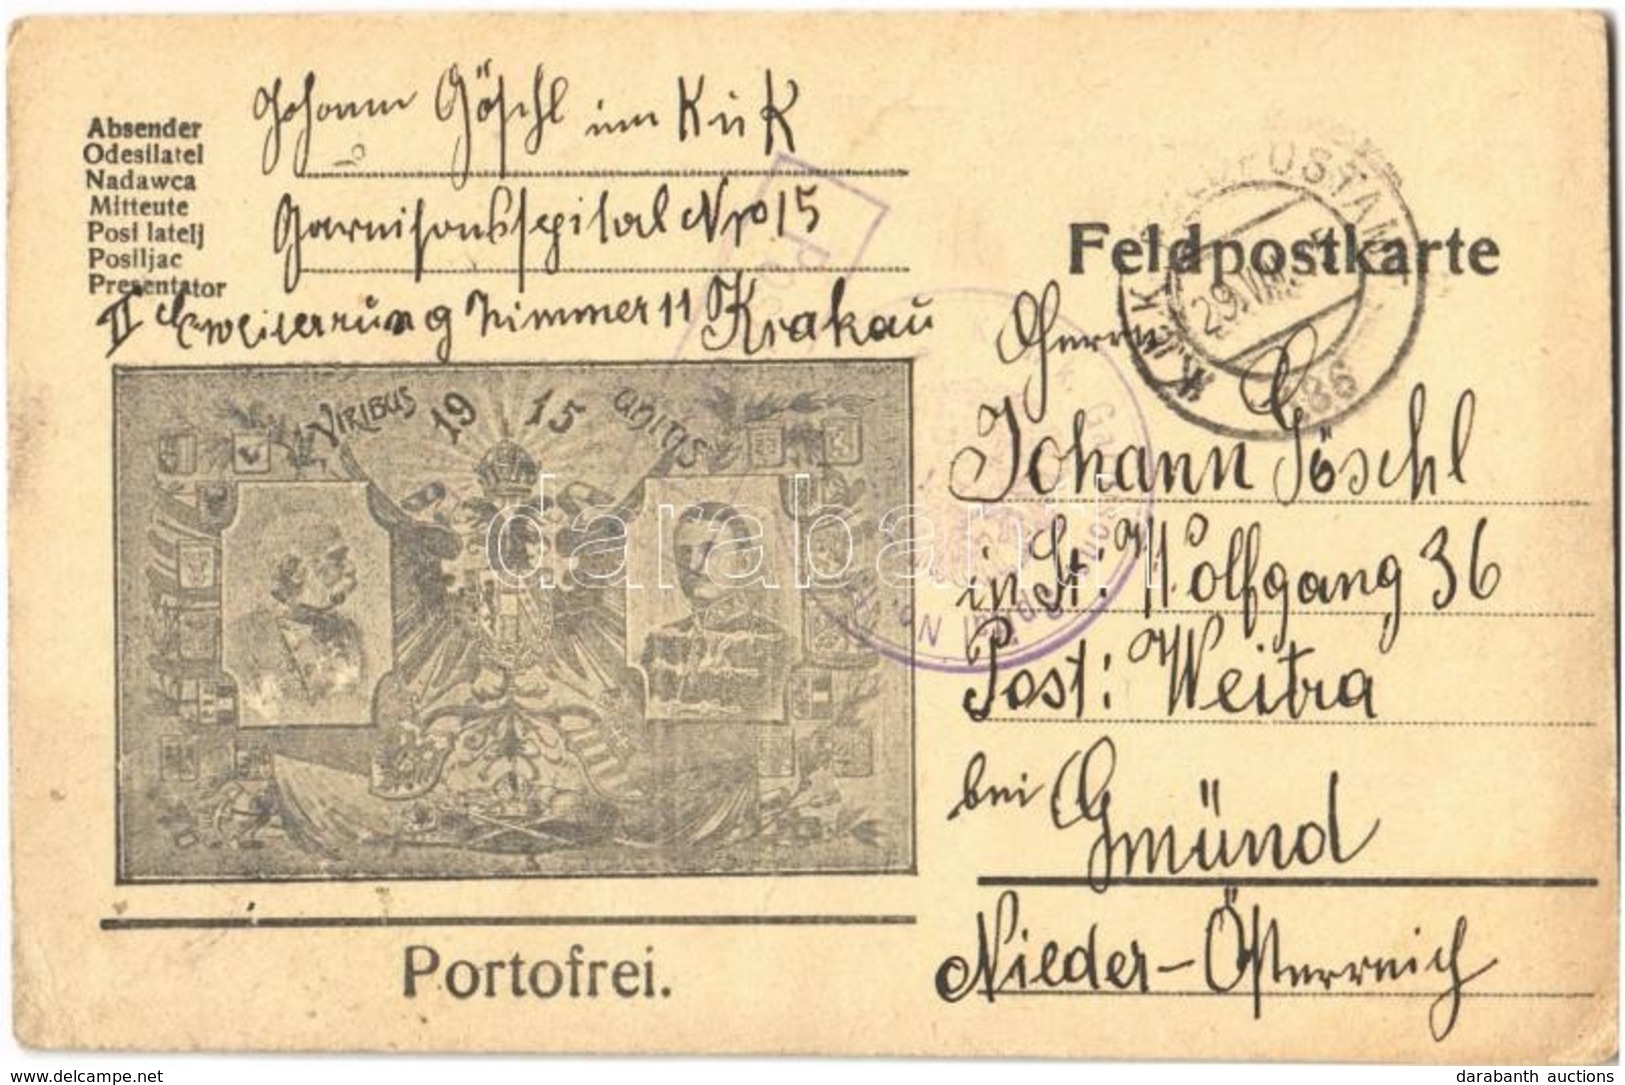 Absender
Odesilatel
Nadawca
Mitteute
Posi latelj
Posiljac
Presentator
Johann Göschl im K u K
Garnisonsspital Nro 15
II Erweiterung Zimmer 11 Krakau
Feldpostkarte
K.u.K. FELDPOSTAMT
29.VII
186
VIRIBUS 1915 UNITIS
Herrn
Johann Göschl
in St: Wolfgang 36
Post: Weitra
bei Gmünd
Nieder-Österreich
Portofrei.
darabanth
delcampe.net
darabanth auctions